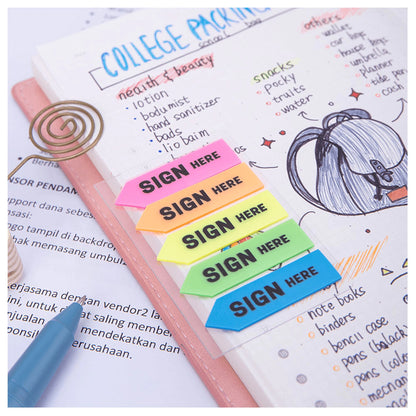 COLLEGE PACKING
health & beauty
• lotion
• body mist
• hand sanitizer
• pads
• lip balm
snacks
• pocky
• fruits
• water
others
• wallet
• car keys
• house keys
• umbrella
• planner
• tide pen
• cash
SIGN HERE
SIGN HERE
SIGN HERE
SIGN HERE
SIGN HERE
• note books
• binders
• pencil case
• pens (black
• pens (colo
• mechan
Berha
NSOR PENDAM
support dana sebes
asasi:
logo tampil di backdro
ahak memasang umbul
erjadi
kerjasama dengan vendor2 la
ini, untuk dapat saling member
njualan
mendekatkan dan
ponsibil
erusahaan.